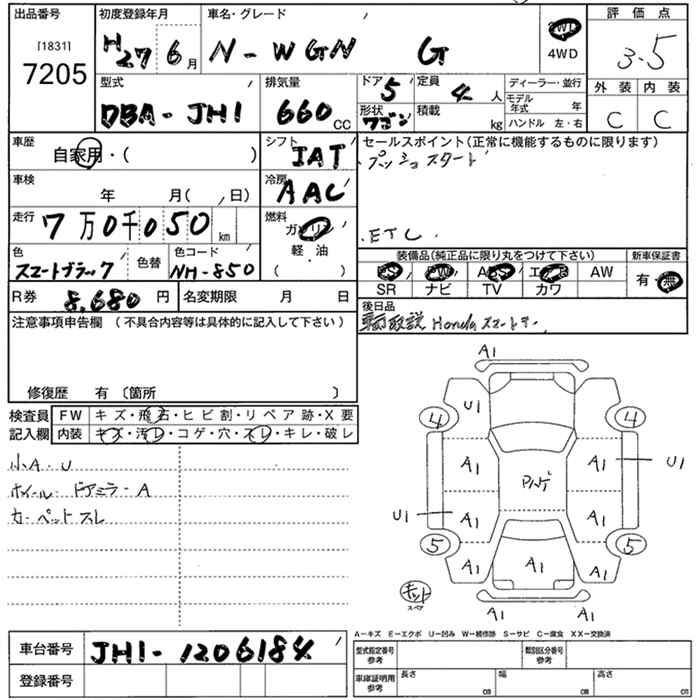 出品番号 初度登録年月 車名・グレード 2WD 評価点
[1831] H27 6月 N-WGN G 4WD 3.5
7205
型式 排気量 ドア 5 定員 4人 ディーラー・並行 外装 内装
DBA-JH1 660CC 形状 ワゴン 積載 kg モデル年式 年 C C
ハンドル 左・右
車歴 シフト セールスポイント(正常に機能するものに限ります)
自家用・( ) IAT ・プッシュスタート
車検 冷房
年 月( , 日) AAC
走行 燃料
7万0千050km ガソリン ・ETC
軽・油
色 色替 色コード ( ) 装備品(純正品に限り丸をつけて下さい) 新車保証書
スマートブラック NH-850 PS PW ABS エアB AW 有・無
SR ナビ TV カワ
R券 8,680円 名変期限 月 日 後日品
取説 Honda スマートキー
注意事項申告欄 (不具合内容等は具体的に記入して下さい)
修復歴 有 〔箇所 〕
検査員 FW キズ・飛石・ヒビ割・リペア跡・X要
記入欄 内装 キズ・汚レ・コゲ・穴・スレ・キレ・破レ
小A・U
ホイール・ドアミラーA
カーペットスレ
A1
U1
4 4
A1 A1 U1
パノゲ
U1 A1 A1
5 5
A1 A1 A1
キット
スペア
A1 A1
A-キズ E-エクボ U-凹み W-補修跡 S-サビ C-腐食 XX-交換済
車台番号 JH1-1206184
登録番号
型式指定番号 参考 類別区分番号 参考
車庫証明用 参考 長さ cm 幅 cm 高さ cm